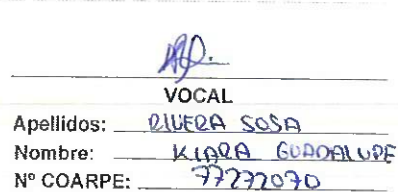 VOCAL
Apellidos: RIVERA SOSA
Nombre: KIARA GUADALUPE
Nº COARPE: 77272070